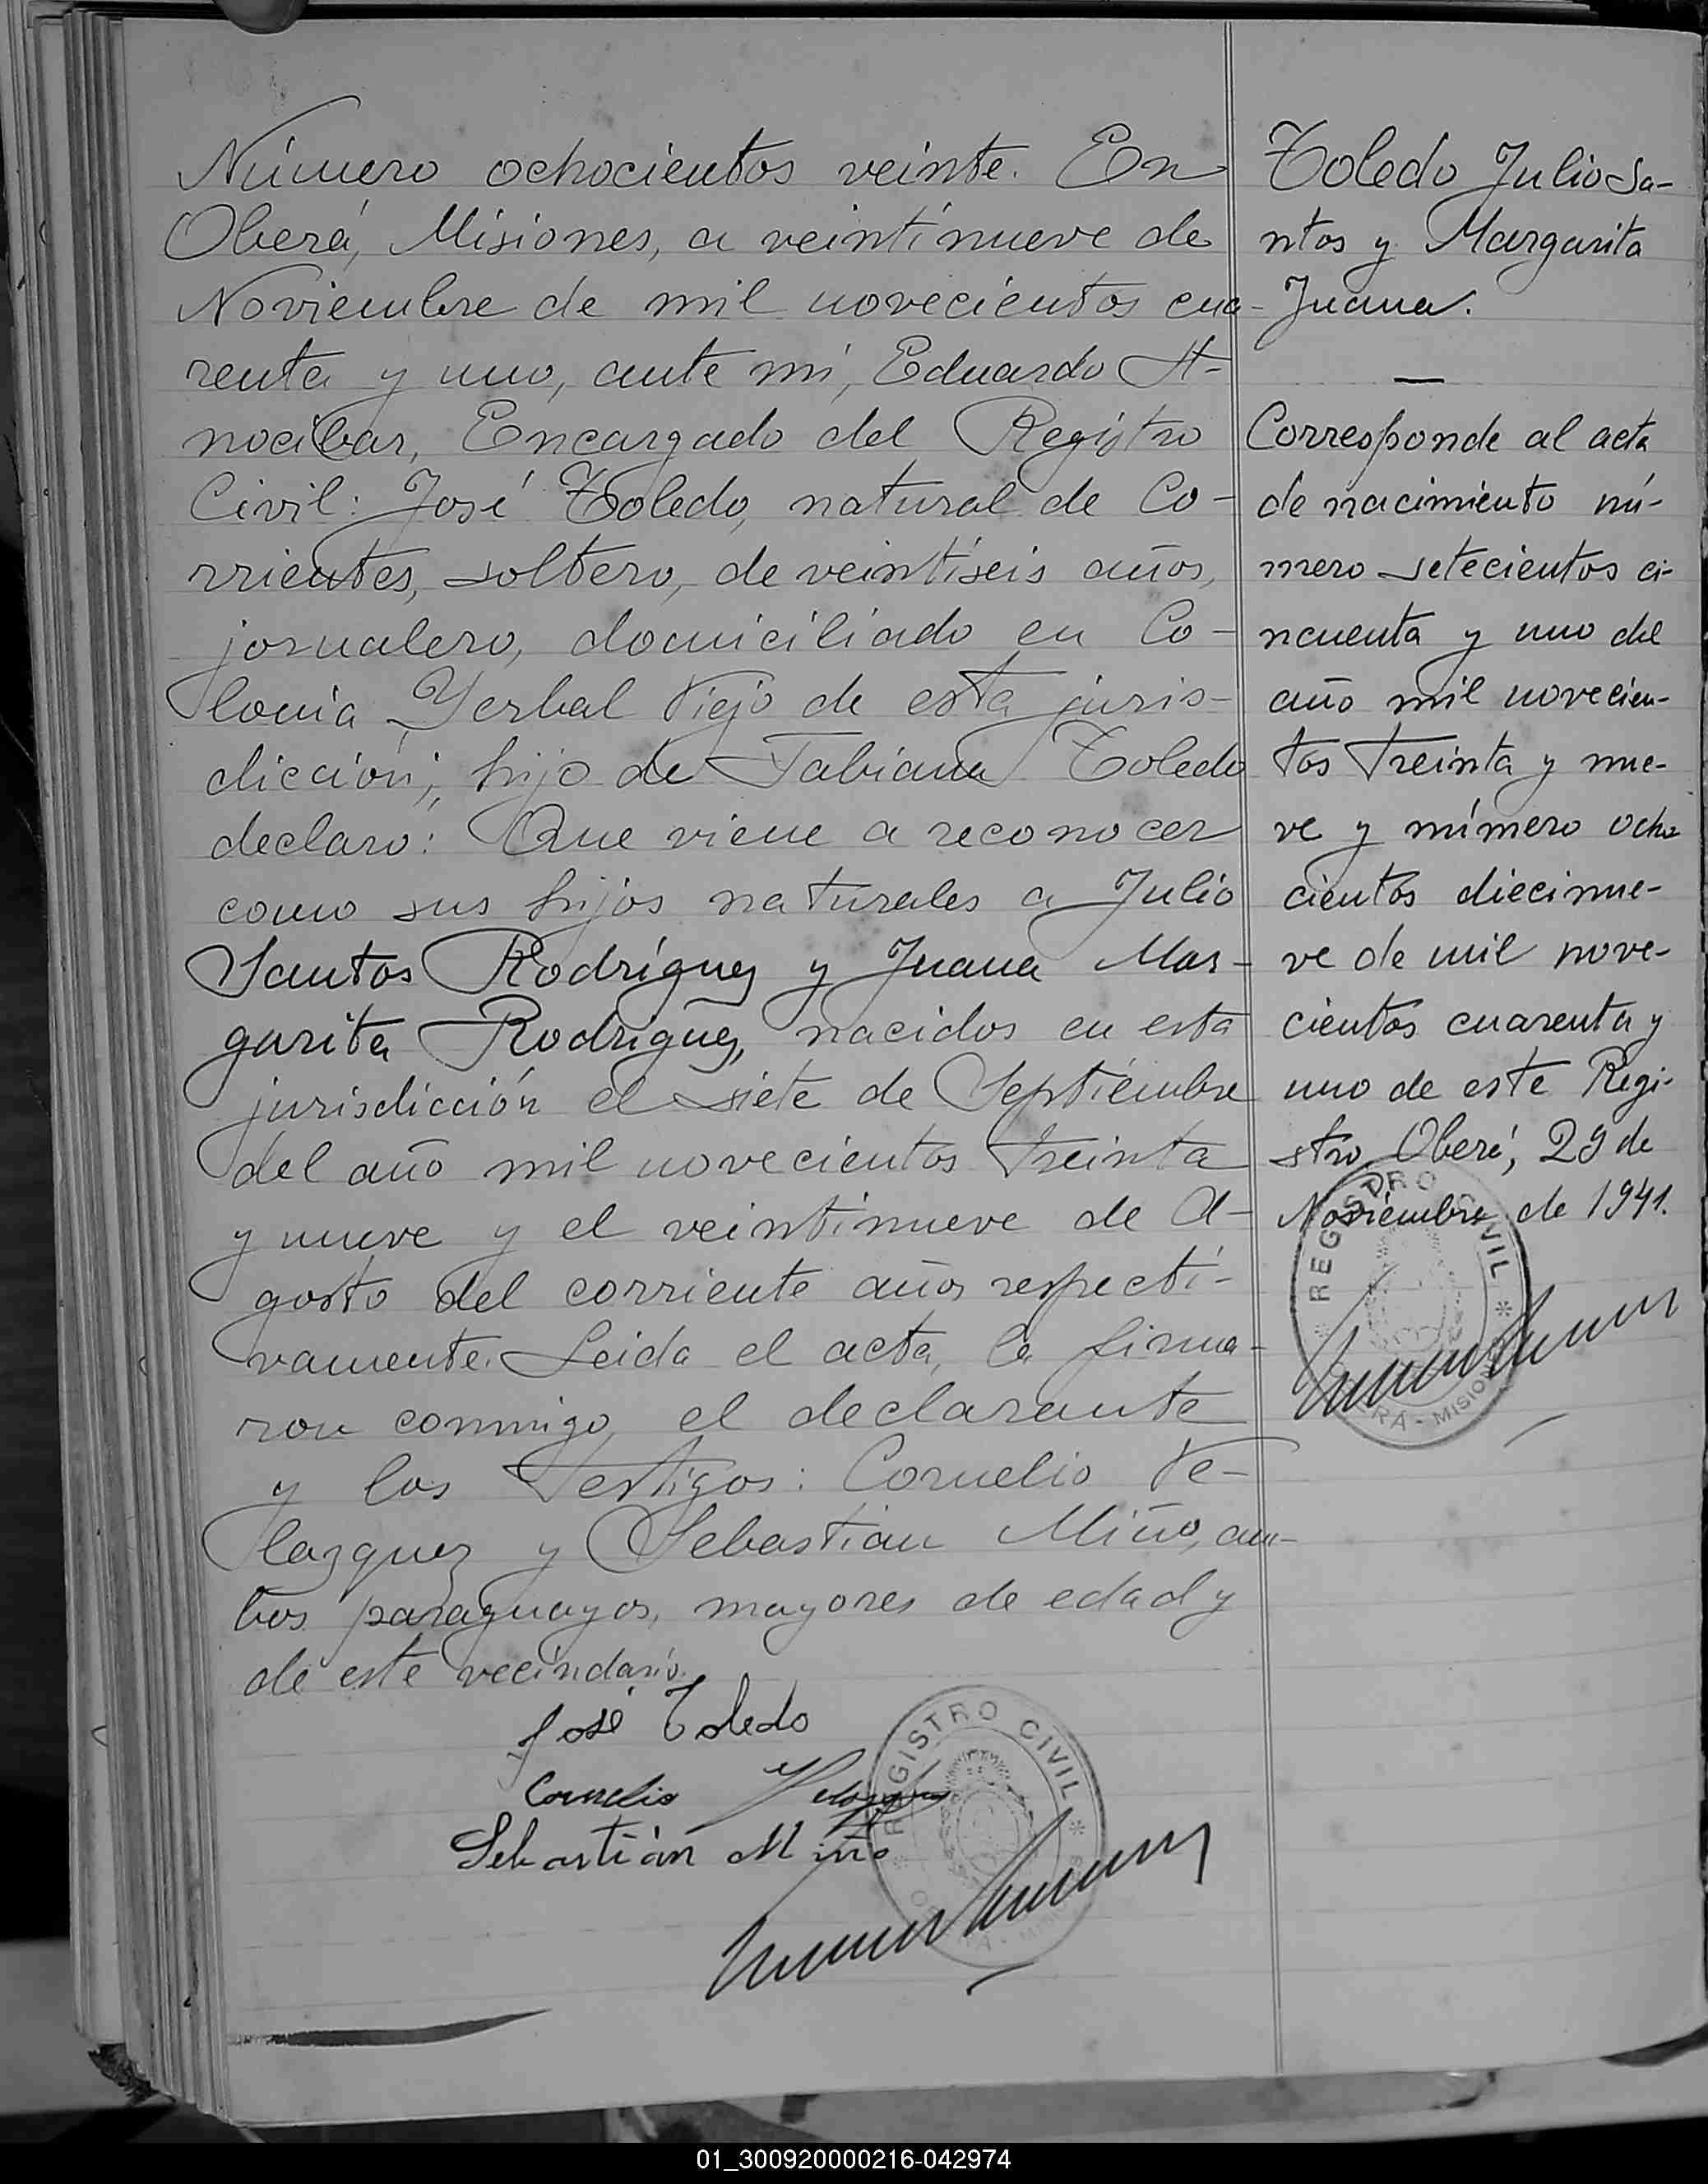 Número ochocientos veinte. En
Oberá, Misiones, a veintinueve de
Noviembre de mil novecientos cua-
renta y uno, ante mi, Eduardo A-
nocibar, Encargado del Registro
Civil: José Toledo, natural de Co-
rrientes, soltero, de veintiseis años,
jornalero, domiciliado en Co-
lonia Yerbal Viejo de esta juris-
dicción; hijo de Fabiana Toledo
declaro: Que viene a reconocer
como sus hijos naturales a Julio
Santos Rodríguez y Juana Mar-
garita Rodríguez, nacidos en esta
jurisdicción el siete de Septiembre
del año mil novecientos treinta
y nueve y el veintinueve de A-
gosto del corriente años respecti-
vamente. Leida el acta, la firma-
ron conmigo, el declarante
y los testigos: Cornelio Ve-
lazquez y Sebastian Miño, am-
bos paraguayos, mayores de edad y
de este vecindario.
José Toledo
Cornelio Velazquez
Sebastián Miño
REGISTRO CIVIL
Toledo Julio Sa-
ntos y Margarita
Juana.
Corresponde al acta
de nacimiento nú-
mero setecientos ci-
ncuenta y uno del
año mil novecien-
tos treinta y nue-
ve y número ocho
cientos diecinue-
ve de mil nove-
cientos cuarenta y
uno de este Regi-
stro Oberá, 29 de
Noviembre de 1941.
REGISTRO CIVIL
OBERÁ - MISIONES
01_300920000216-042974